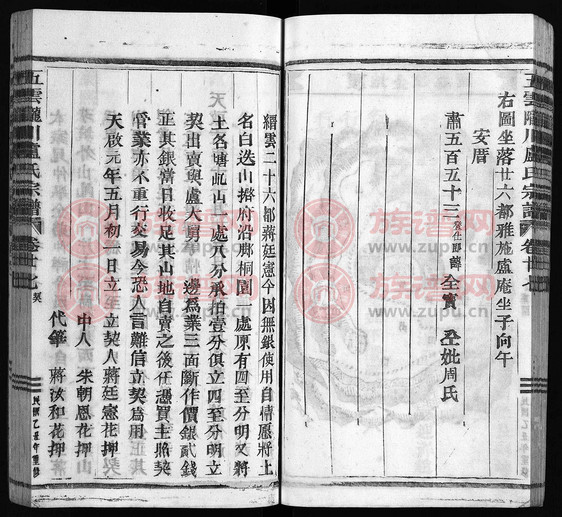 五雲隴川盧氏宗譜 卷廿七
民國乙丑年重修
右圖坐落廿六都雅施盧庵坐子向午
安厝
肅五百五十三 諱 全寶 全妣周氏
縉雲二十六都蔣廷憲今因無銀使用自情愿將土
名白迭山 桐園一處原有四至分明又將
土名 山一處八分承拍壹分俱立四至分明立
契出賣與盧大舅 邊為業三面斷作價銀貳錢
正其銀當日收足其山地自賣之後任憑買主將契
管業亦不重行交易今恐人言難信立契為用
天啟元年五月初一日立 立契人蔣廷憲花押
中人 朱朝恩花押
代筆 蔣汝和花押
五雲隴川盧氏宗譜 卷廿七 契
民國乙丑年重修
族谱网
www.zupu.cn
族谱网
www.zupu.cn
族谱网
www.zupu.cn
族谱网
www.zupu.cn